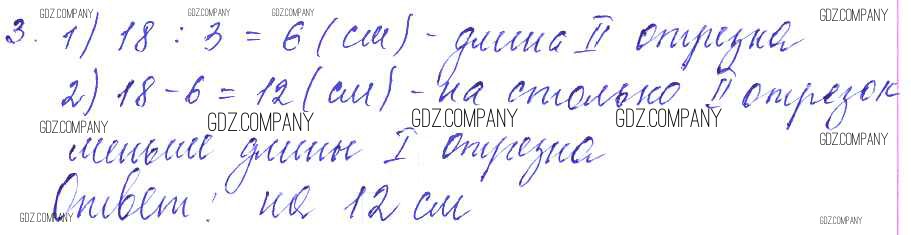 GDZ.COMPANY GDZ.COMPANY GDZ.COMPANY GDZ.COMPANY
3. 1) 18 : 3 = 6 (см) - длина II отрезка
GDZ.COMPANY
2) 18 - 6 = 12 (см) - на столько II отрезок
GDZ.COMPANY GDZ.COMPANY GDZ.COMPANY GDZ.COMPANY GDZ.COMPANY
меньше длины I отрезка
Ответ: на 12 см
GDZ.COMPANY GDZ.COMPANY